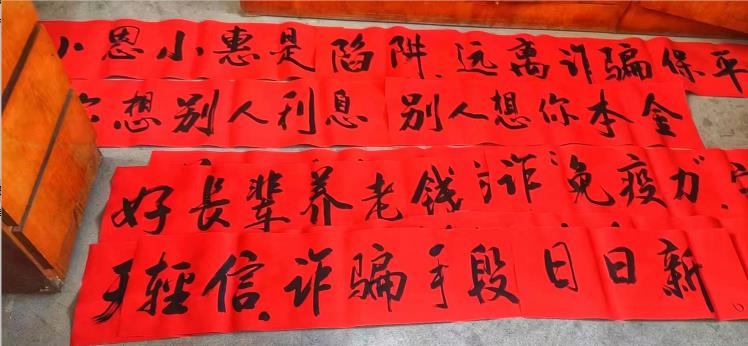 小恩小惠是陷阱.远离诈骗保平
你想别人利息 别人想你本金
好長辈养老钱 诈免疫力.
轻信.诈骗手段日日新